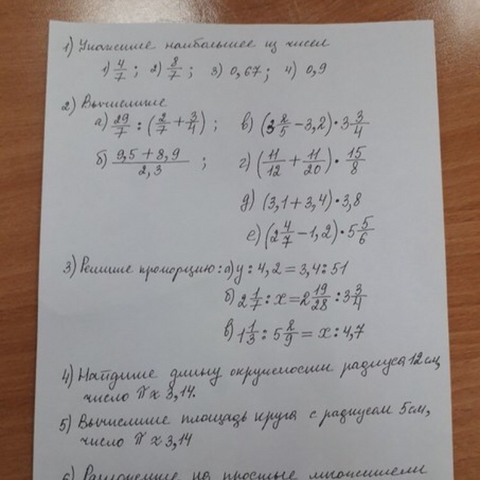 1) Укажите наибольшее из чисел
1) 4/7 ; 2) 8/7 ; 3) 0,67 ; 4) 0,9
2) Вычислите
а) 29/7 : (2/7 + 3/4) ; в) (3 2/5 − 3,2) • 3 3/4
б) (9,5 + 8,9)/2,3 ; г) (11/12 + 11/20) • 15/8
д) (3,1 + 3,4) • 3,8
е) (2 4/7 − 1,2) • 5 5/6
3) Решите пропорцию: а) у : 4,2 = 3,4 : 51
б) 2 1/7 : х = 2 19/28 : 3 3/4
в) 1 1/3 : 5 2/9 = х : 4,7
4) Найдите длину окружности радиуса 12 см,
число π ≈ 3,14.
5) Вычислите площадь круга с радиусом 5 см,
число π ≈ 3,14
6) Разложение на простые множители